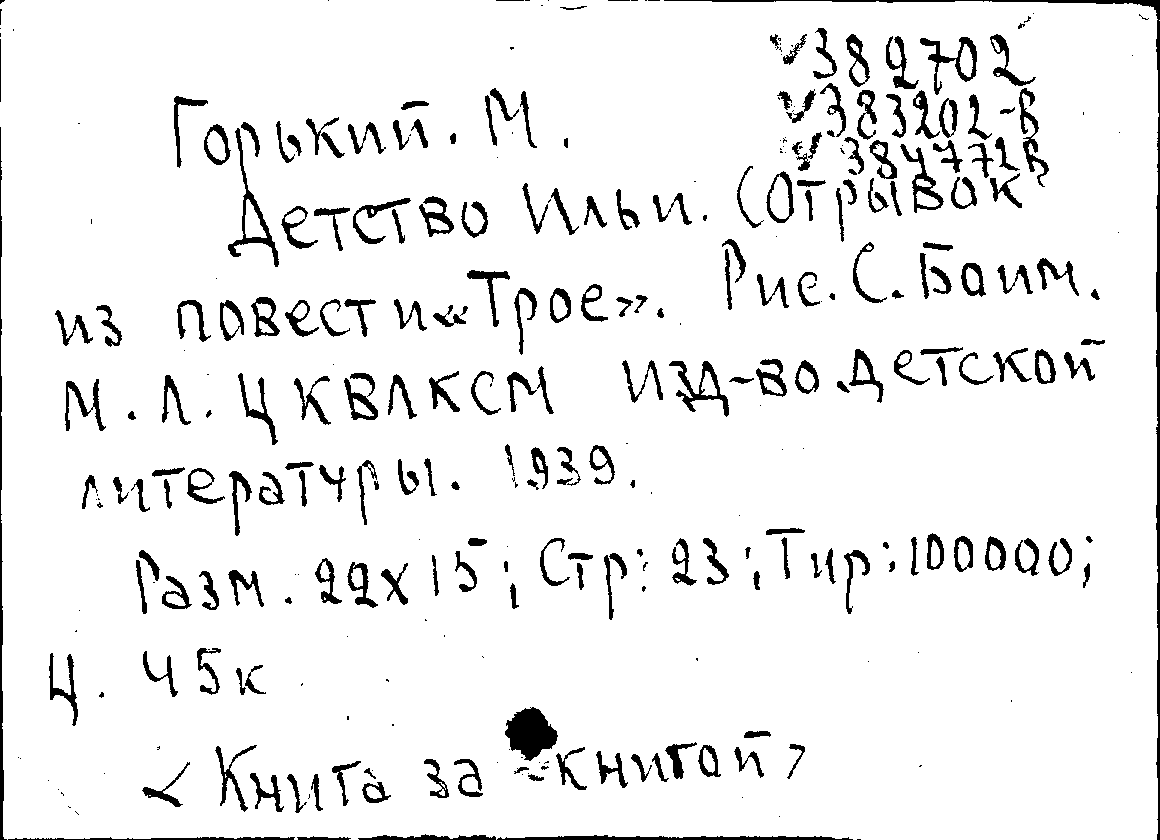 382702
383202-В
384772В
Горький. М.
Детство Ильи. (Отрывок
из повести «Трое». Рис. С. Боим.
М. Л. ЦКВЛКСМ Изд-во детской
литературы. 1939.
Разм. 22х15; Стр: 23; Тир: 100000;
Ц. 45к
< Книга за книгой >